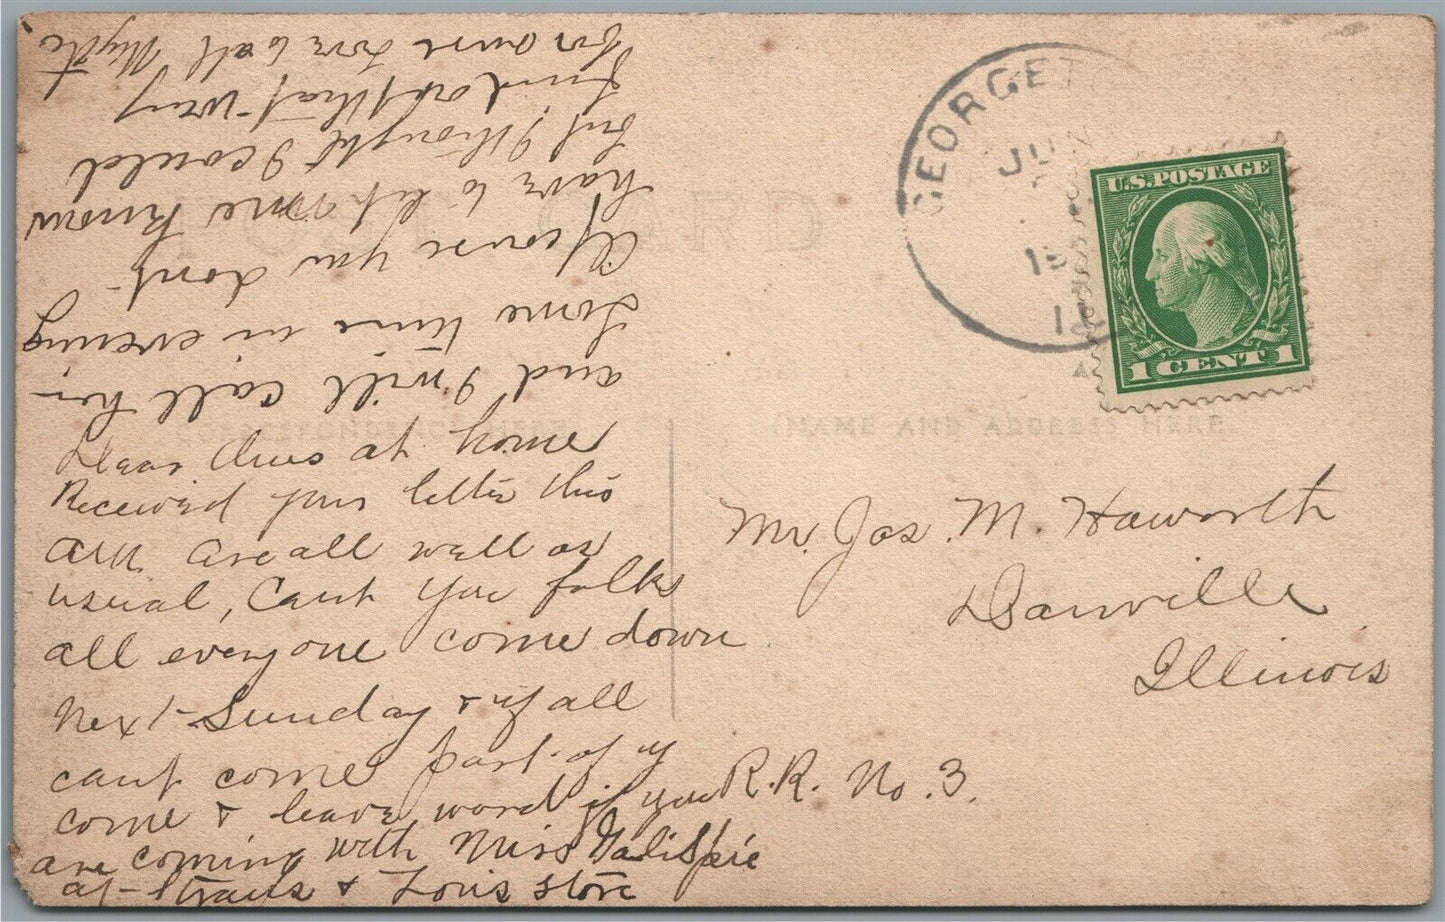 Dear Ones at home
Received your letter this
A.M. are all well as
usual, Can't you folks
all everyone come down
next Sunday & if all
can't come part of y
come & leave word if you
are coming with Miss Galispie
at Straus & Louis store
and I will call her
some time in evening
Of course you don't
have to let me know
but I thought I could
find out that way
love to all
POST CARD
CORRESPONDENCE HERE
NAME AND ADDRESS HERE.
GEORGETO
JUN
U.S. POSTAGE
1 CENT 1
Mr. Jas. M. Haworth
Danville
Illinois
R.R. No. 3.